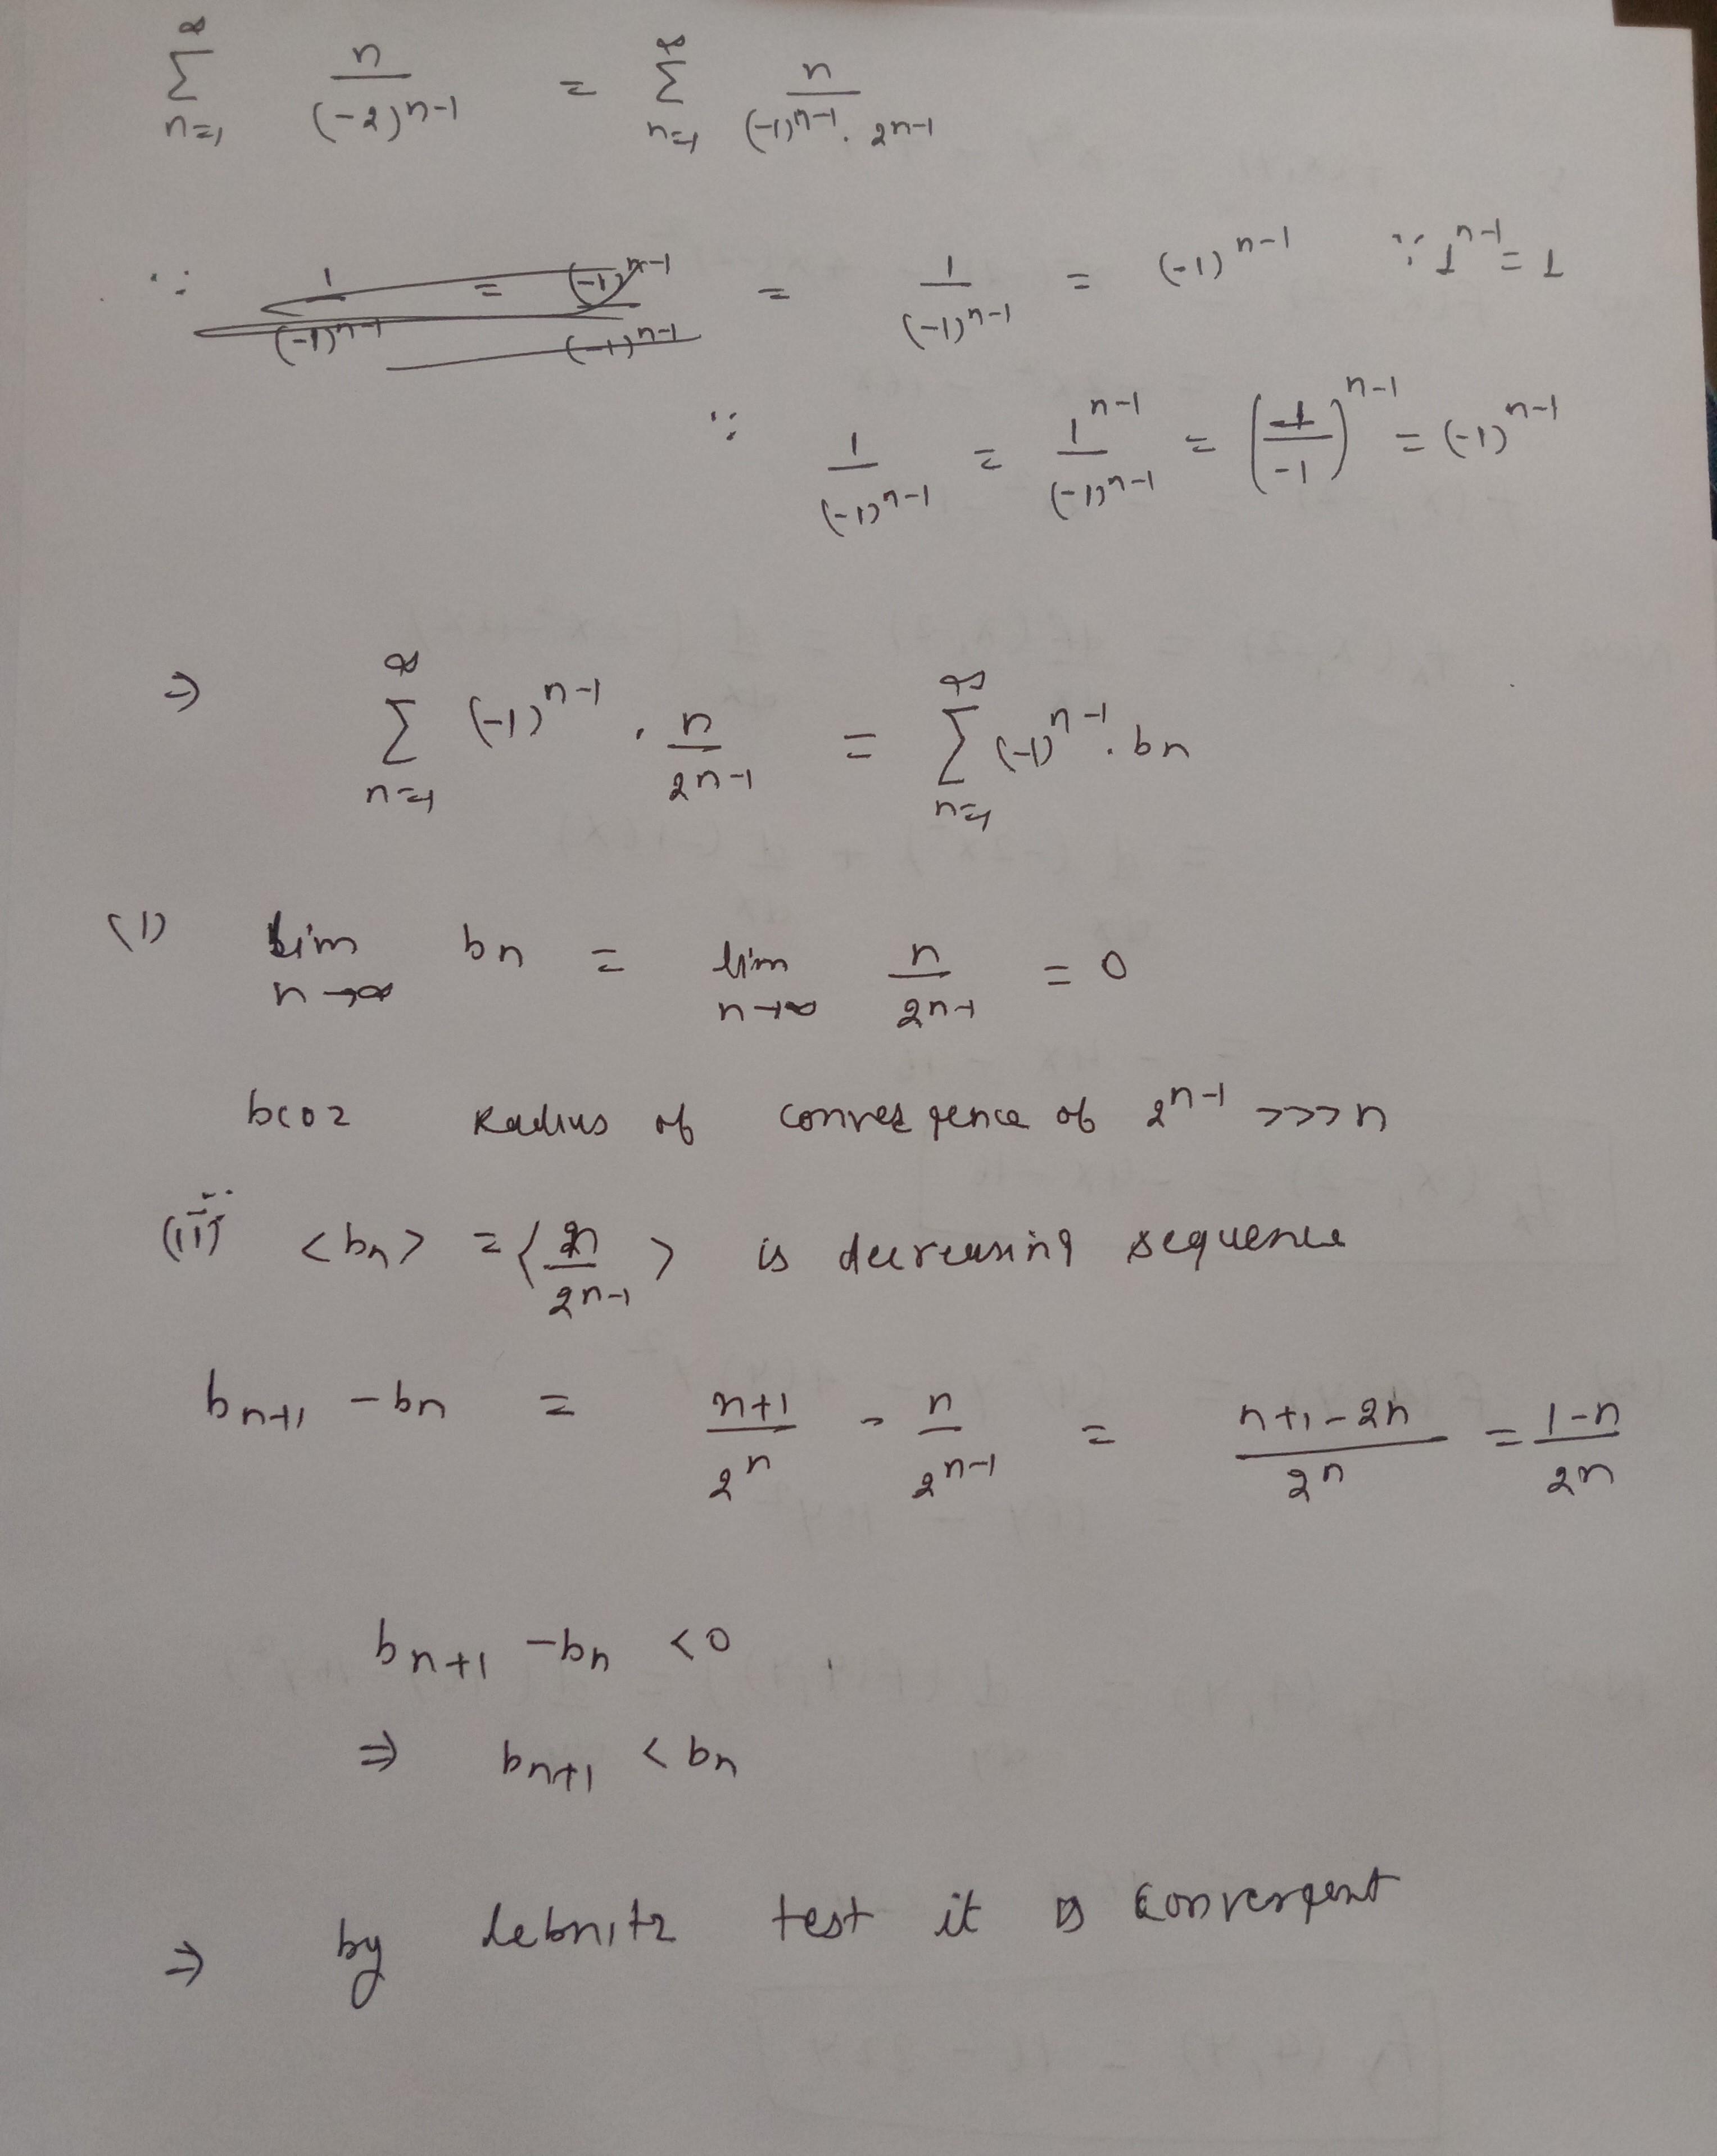 ∞∑n=1 n/(-2)^n-1 = ∞∑n=1 n/(-1)^n-1 . 2^n-1
∵ 1/(-1)^n-1 = (-1)^n-1/(-1)^n-1 = 1/(-1)^n-1 = (-1)^n-1 ∵ 1^n-1 = 1
∵ 1/(-1)^n-1 = 1^n-1/(-1)^n-1 = (1/-1)^n-1 = (-1)^n-1
⇒ ∞∑n=1 (-1)^n-1 . n/2^n-1 = ∞∑n=1 (-1)^n-1 . bn
(1) lim n→∞ bn = lim n→∞ n/2^n-1 = 0
bcoz Radius of convergence of 2^n-1 >>> n
(ii) <bn> = <n/2^n-1> is decreasing sequence
bn+1 - bn = n+1/2^n - n/2^n-1 = n+1-2n/2^n = 1-n/2^n
bn+1 - bn <0
⇒ bn+1 < bn
⇒ by Lebnitz test it is convergent